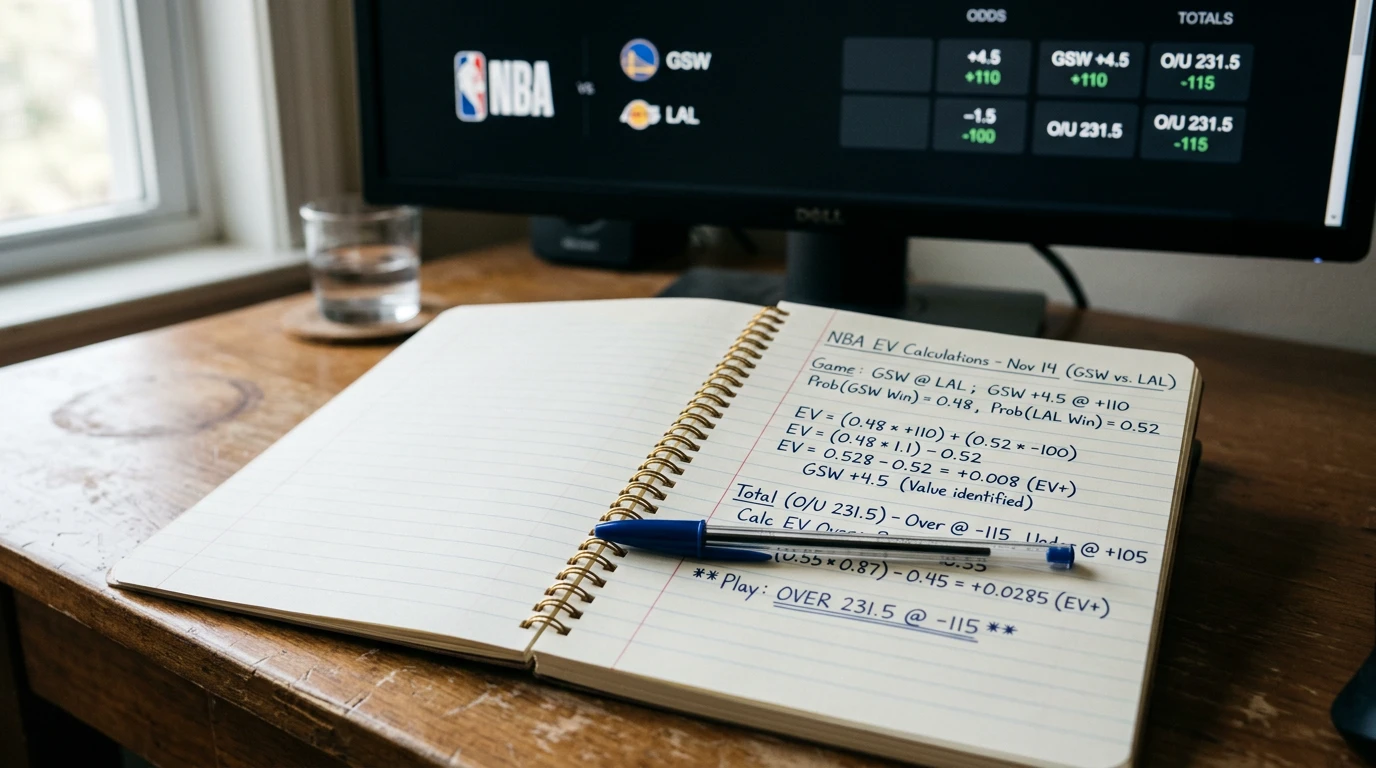 ODDS TOTALS
NBA VS GSW +4.5 +110 GSW +4.5 +110 O/U 231.5 -115
LAL -1.5 -100 O/U 231.5 O/U 231.5 -115
DELL
NBA EV Calculations - Nov 14 (GSW vs. LAL)
Game: GSW @ LAL; GSW +4.5 @ +110
Prob(GSW Win) = 0.48, Prob(LAL Win) = 0.52
EV = (0.48 * +110) + (0.52 * -100)
EV = (0.48 * 1.1) - 0.52
EV = 0.528 - 0.52 = +0.008 (EV+)
GSW +4.5 (Value identified)
Total (O/U 231.5) - Over @ -115 @ +105
Calc EV
(0.55 * 0.87) - 0.45 = +0.0285 (EV+)
** Play: OVER 231.5 @ -115 **